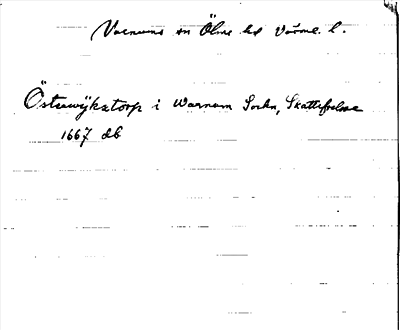 Varnums sn Ölme hd Värml. l.
Östervijkztorp i Warnum Sochn, Skattefrelsse
1667 db